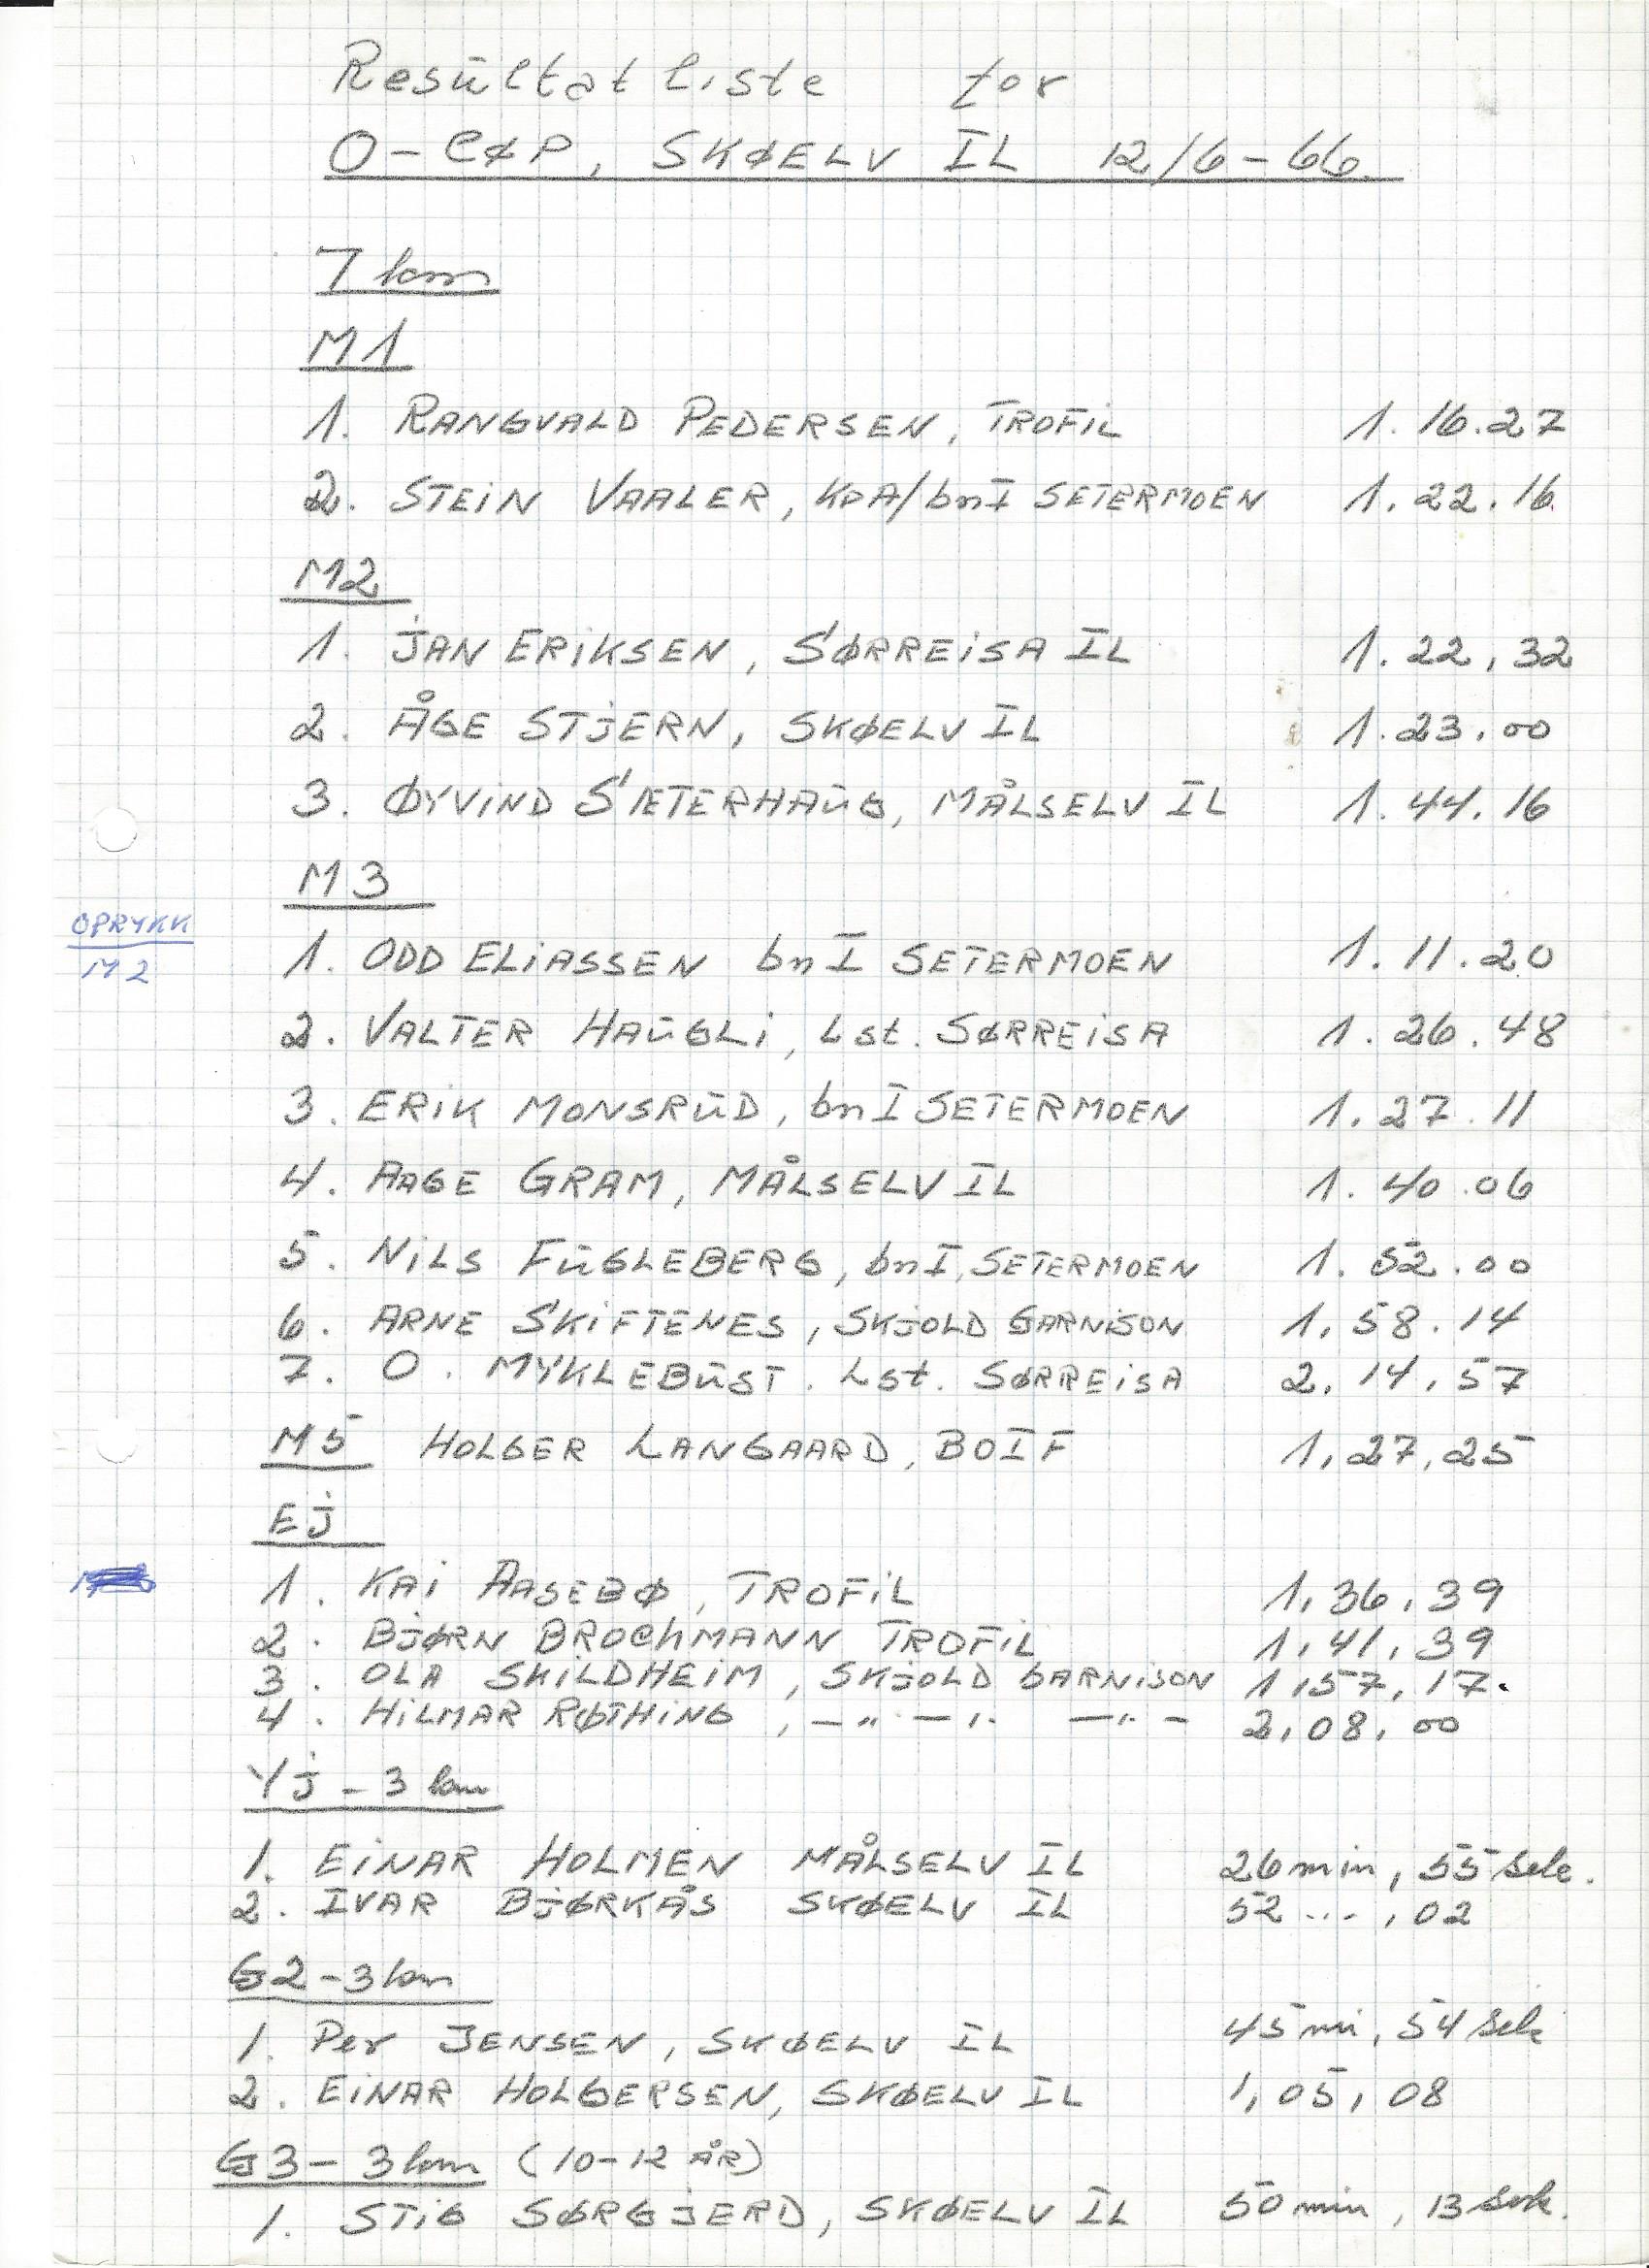 Resultatliste for
O-CØP, SKØELV IL 12/6-66.
7 km
M1
1. RANGVALD PEDERSEN, TROFIL 1.16.27
2. STEIN VAALER, KPA/bn I SETERMOEN 1.22.16
M2
1. JAN ERIKSEN, SØRREISA IL 1.22,32
2. ÅGE STJERN, SKØELV IL 1.23,00
3. ØYVIND SÆTERHAUG, MÅLSELV IL 1.44.16
M3
OPRYKK
M2
1. ODD ELIASSEN bn I SETERMOEN 1.11.20
2. VALTER HAUGLI, Lst. SØRREISA 1.26.48
3. ERIK MONSRUD, bn I SETERMOEN 1.27.11
4. AAGE GRAM, MÅLSELV IL 1.40.06
5. NILS FUGLEBERG, bn I, SETERMOEN 1.52.00
6. ARNE SKIFTENES, SKJOLD GARNISON 1,58.14
7. O. MYKLEBUST. Lst. SØRREISA 2.14,57
M5 HOLGER LANGAARD, BOIF 1,27,25
EJ
1. KAI AASEBØ, TROFIL 1,36,39
2. BJØRN BROCHMANN TROFIL 1,41,39
3. OLA SKILDHEIM, SKJOLD GARNISON 1,57,17.
4. HILMAR RØTHING, -"- -"- -"- 2,08,00
YJ - 3 km
1. EINAR HOLMEN MÅLSELV IL 26 min, 55 sek.
2. IVAR BJØRKÅS SKØELV IL 52 ..., 02
G2-3 km
1. Per JENSEN, SKØELV IL 45 min, 54 sek
2. EINAR HOLGERSEN, SKØELV IL 1,05,08
G3-3 km (10-12 ÅR)
1. STIG SØRGJERD, SKØELV IL 50 min, 13 sek.